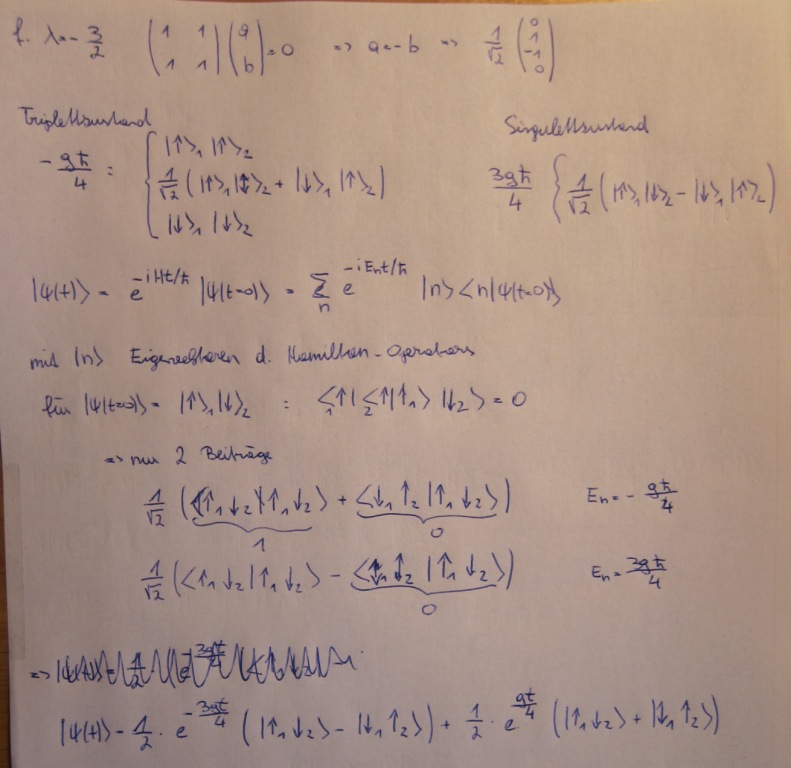 f. λ=-3/2 (1 1 / 1 1)(a / b)=0 => a=-b => 1/√2 (0 / 1 / -1 / 0)
Triplettzustand Singulettzustand
-gℏ/4 : { |↑>₁ |↑>₂
1/√2 (|↑>₁|↓>₂ + |↓>₁ |↑>₂) 3gℏ/4 { 1/√2 (|↑>₁|↓>₂ - |↓>₁|↑>₂)
|↓>₁ |↓>₂
|ψ(t)> = e^{-iHt/ℏ} |ψ(t=0)> = Σ_n e^{-iE_n t/ℏ} |n><n|ψ(t=0)>
mit |n> Eigenvektoren d. Hamilton-Operators
für |ψ(t=0)> = |↑>₁|↓>₂ : ₁<↑|₂<↑|↑₁> |↓₂> = 0
=> nur 2 Beiträge
1/√2 (<↑₁↓₂|↑₁↓₂> + <↓₁↑₂|↑₁↓₂>) E_n = -gℏ/4
1 0
1/√2 (<↑₁↓₂|↑₁↓₂> - <↓₁↑₂|↑₁↓₂>) E_n = 3gℏ/4
0
=>
|ψ(t)> = 1/2 · e^{-3gt/4} (|↑₁↓₂> - |↓₁↑₂>) + 1/2 · e^{gt/4} (|↑₁↓₂> + |↓₁↑₂>)